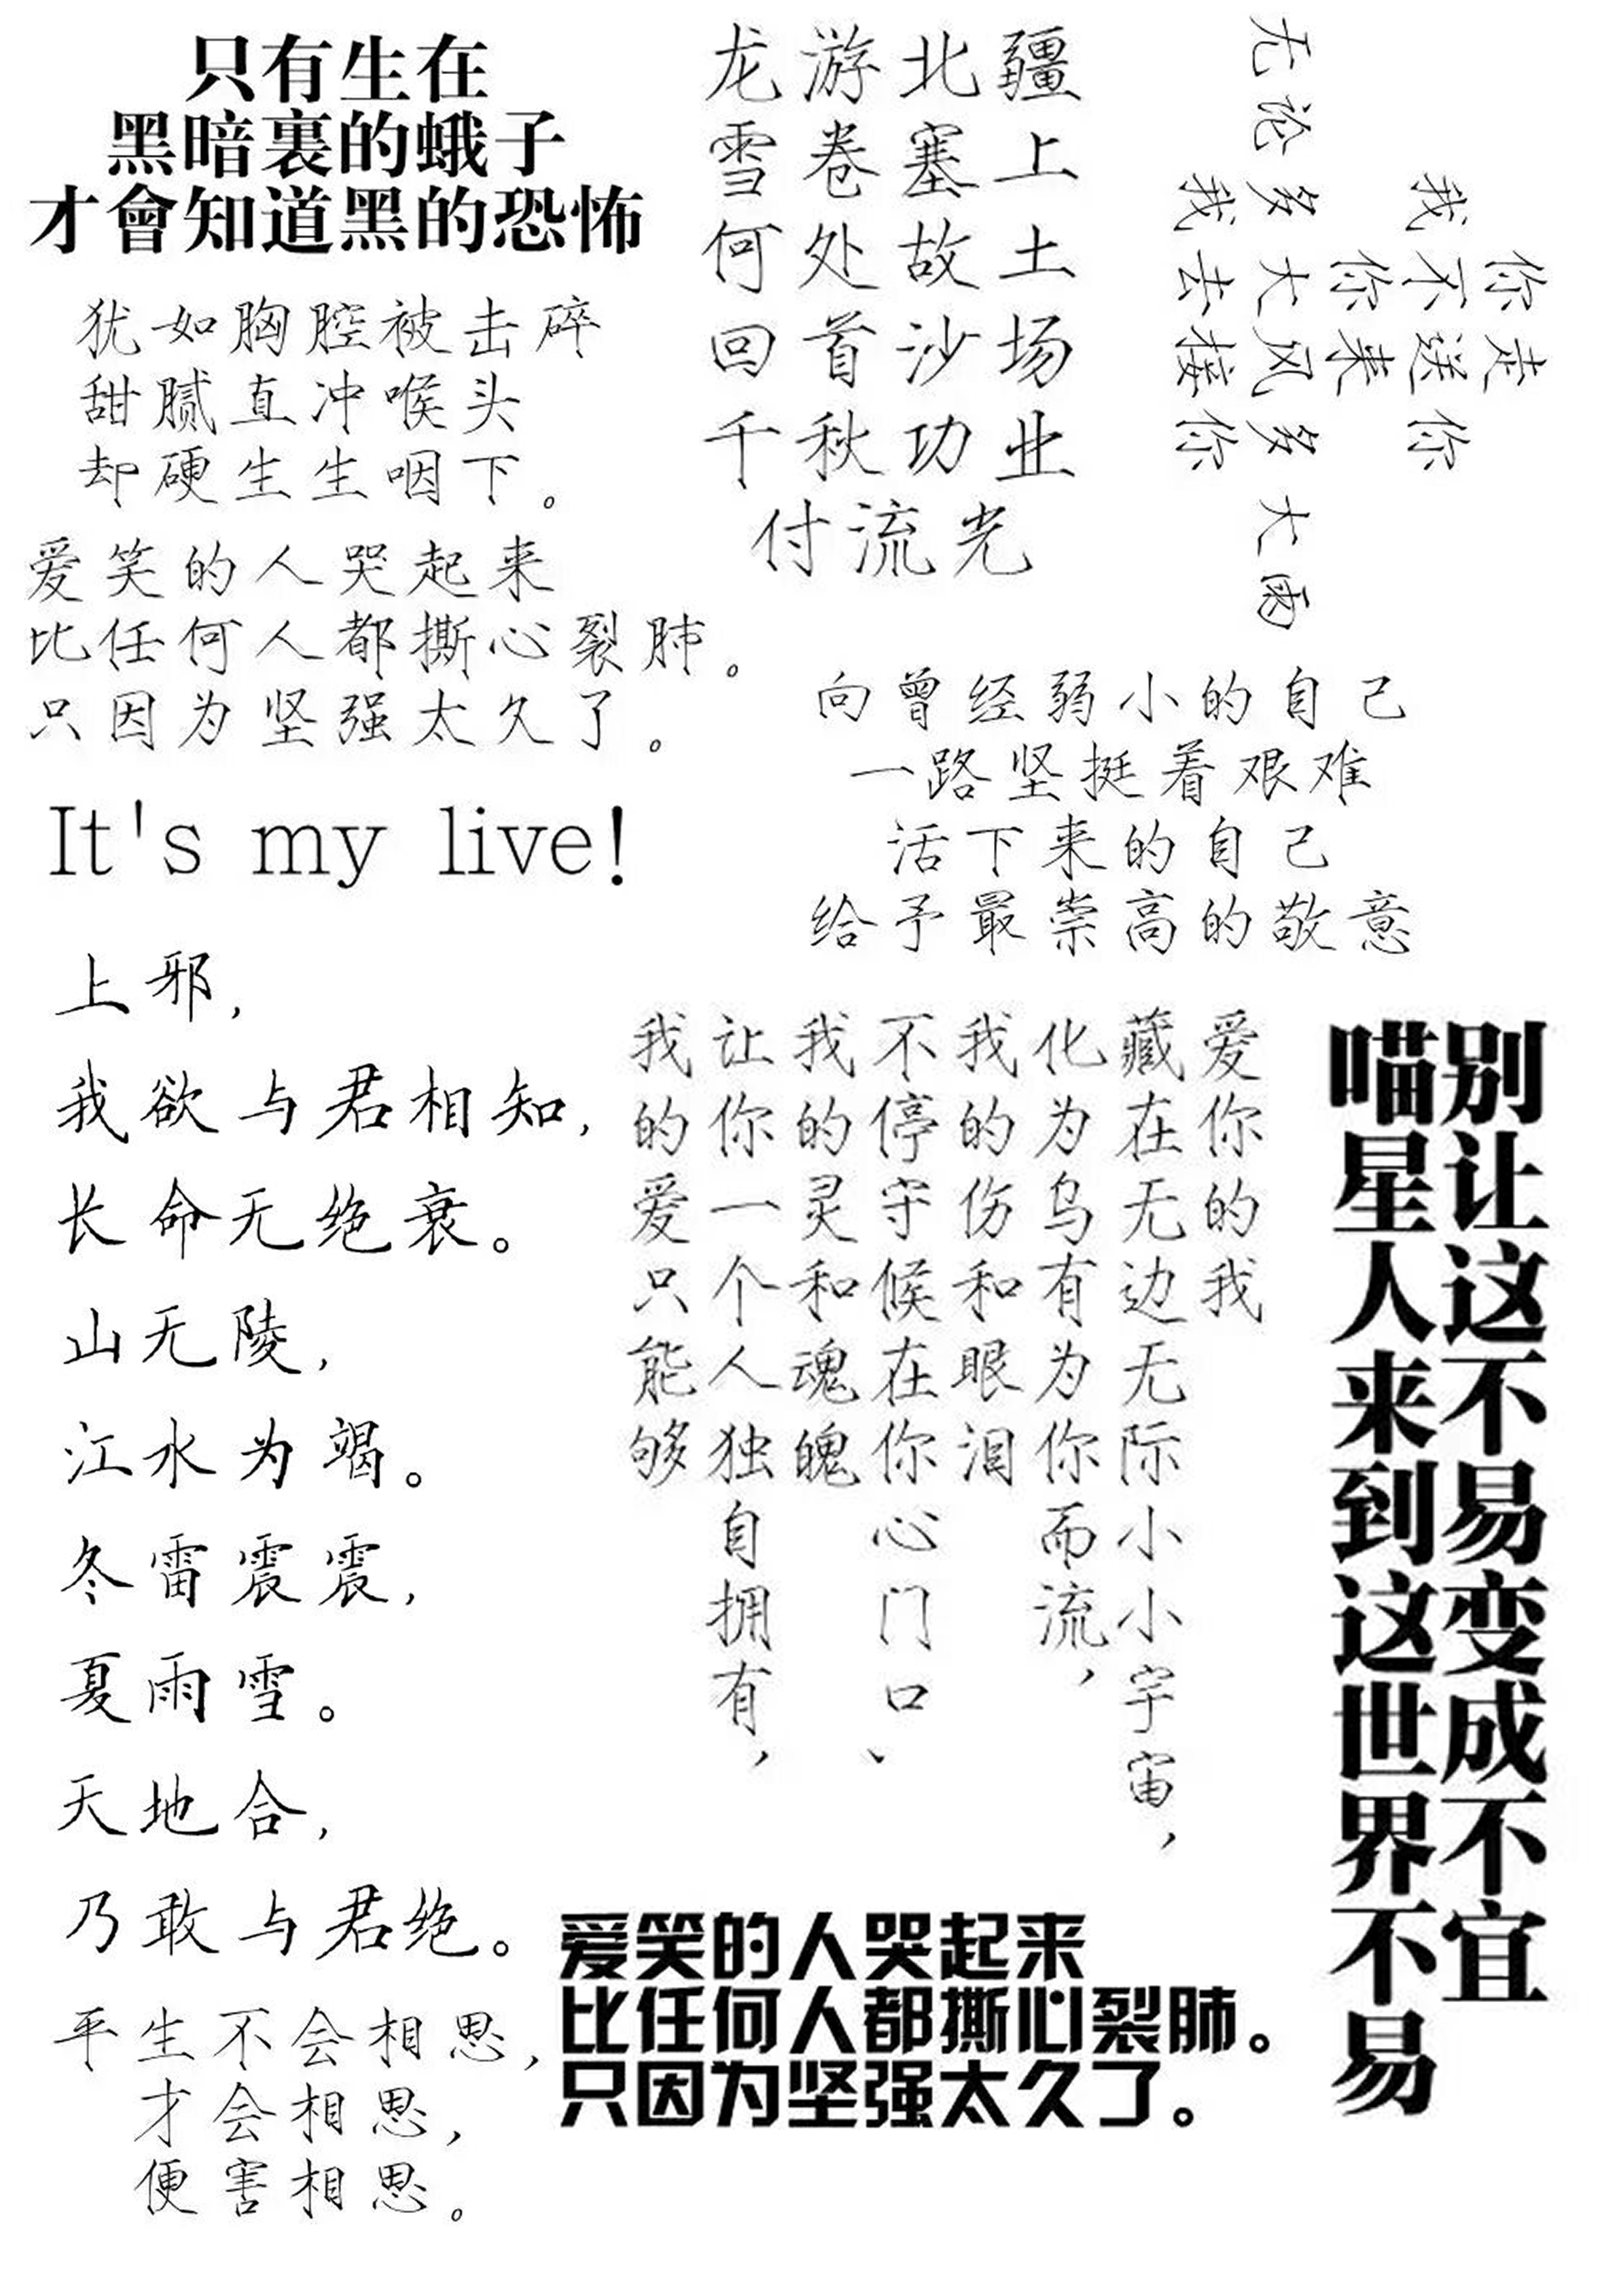 只有生在
黑暗裏的蛾子
才會知道黑的恐怖
犹如胸腔被击碎
甜腻直冲喉头
却硬生生咽下。
爱笑的人哭起来
比任何人都撕心裂肺。
只因为坚强太久了。
It's my live!
龙游北疆
雪卷塞上
何处故土
回首沙场
千秋功业
付流光
你走
我不送你
你来
无论多大风多大雨
我去接你
向曾经弱小的自己
一路坚挺着艰难
活下来的自己
给予最崇高的敬意
上邪,
我欲与君相知,
长命无绝衰。
山无陵,
江水为竭。
冬雷震震,
夏雨雪。
天地合,
乃敢与君绝。
平生不会相思,
才会相思,
便害相思。
我的爱只能够
让你一个人独自拥有，
我的灵和魂魄
不停守候在你心门口、
我的伤和眼泪
化为乌有为你而流，
藏在无边无际小小宇宙，
爱你的我
喵星人来到这世界不易
别让这不易变成不宜
爱笑的人哭起来
比任何人都撕心裂肺。
只因为坚强太久了。